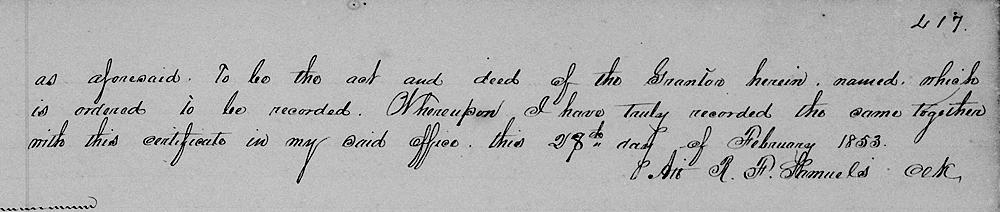 417.
as aforesaid. To be the act and deed of the Grantor herein. named. which
is ordered To be recorded. Whereupon I have truly recorded the same together
with this certificate in my said office. this day of February 1853.
Att R. F. Samuels Clk,